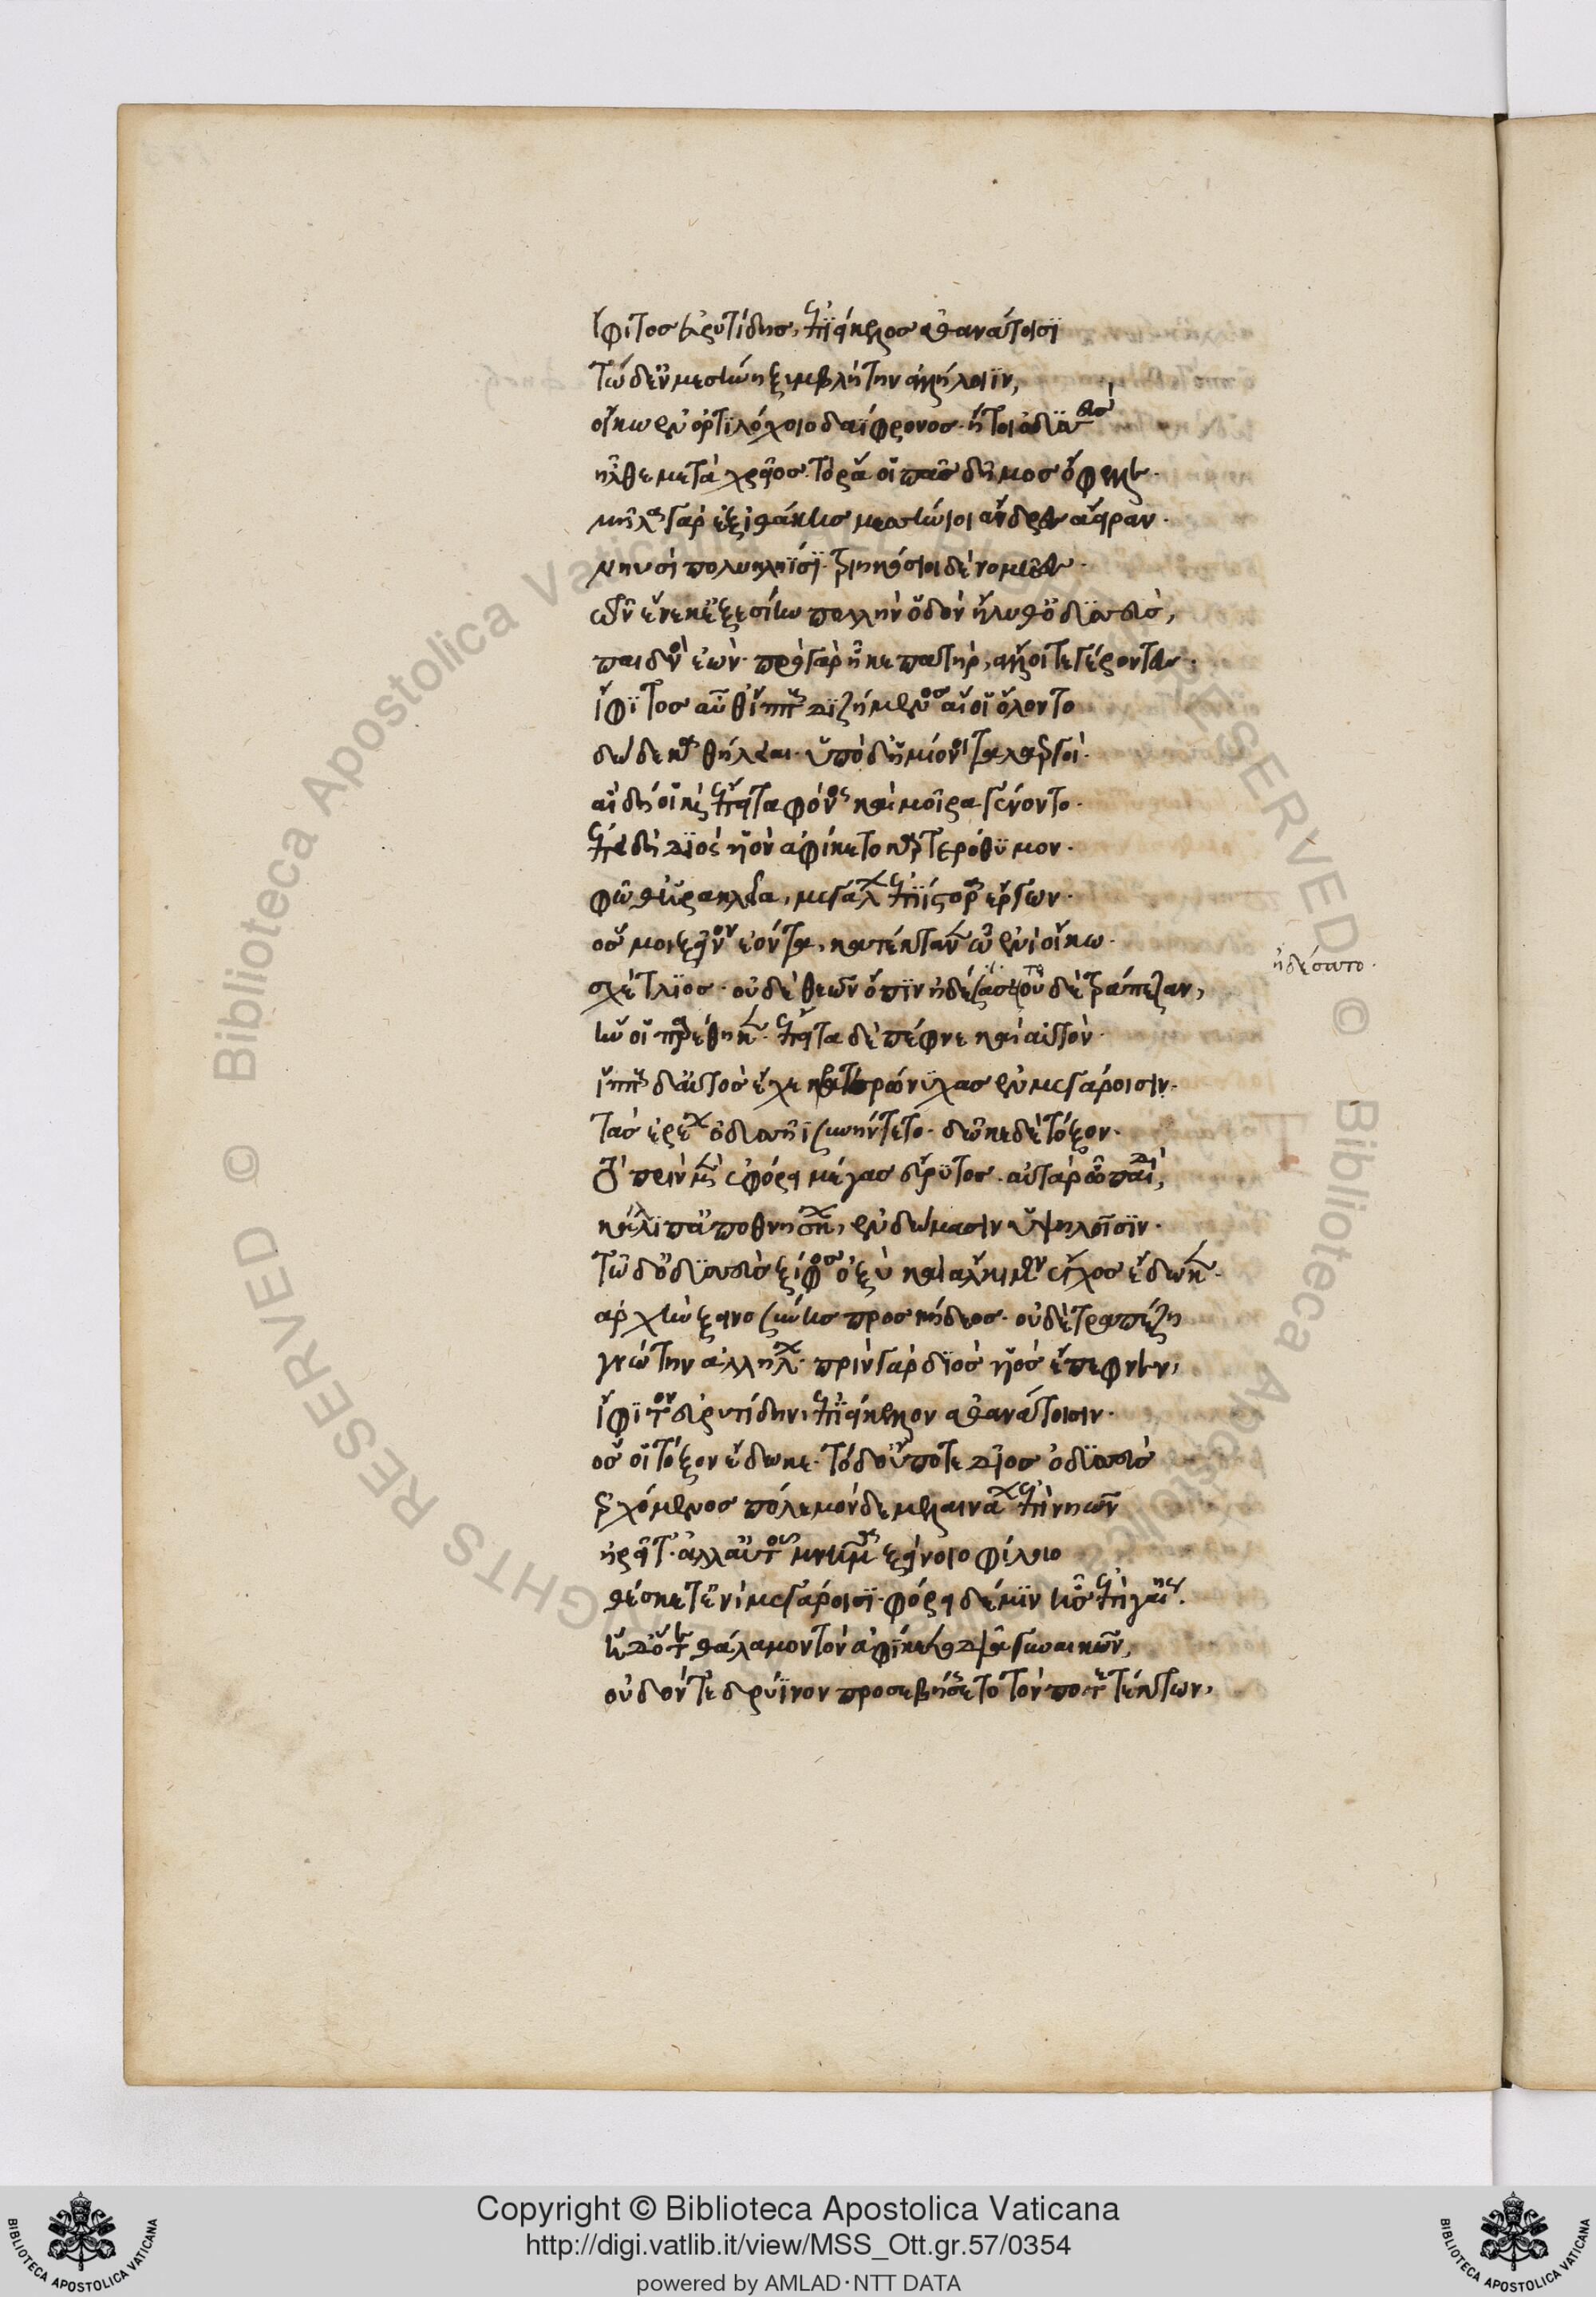 ἴφιτος εὐρυτίδης, ἐπιείκελος ἀθανάτοισι
τὼ δ' ἐν μεσσήνῃ ξυμβλήτην ἀλλήλοιιν,
οἴκω ἐν ὀρτιλόχοιο δαΐφρονος· ἤτοι ὀδυσσεὺς
ἦλθε μετὰ χρεῖος· τό ῥά οἱ πᾶς δῆμος ὄφελλε·
μῆλα γὰρ ἐξ ἰθάκης μεσσήνιοι ἄνδρες ἄειραν·
νηυσὶ πολυκλήϊσι· τριηκόσι' ἠδὲ νομῆας·
τῶν ἕνεκ' ἐξεσίην πολλὴν ὁδὸν ἤλυθ' ὀδυσσεύς,
παιδνὸς ἐών· πρὸ γὰρ ἧκε πατήρ, ἄλλοί τε γέροντες·
ἴφιτος αὖθ' ἵππους διζήμενος αἵ οἱ ὄλοντο
δώδεκα θήλειαι· ὑπὸ δ' ἡμίονοι ταλαεργοί·
αἳ δή οἱ καὶ ἔπειτα φόνος καὶ μοῖρα γένοντο·
ἐπεὶ δὴ διὸς υἱὸν ἀφίκετο καρτερόθυμον·
φῶθ' ἡρακλῆα, μεγάλων ἐπιίστορα ἔργων·
ὅς μιν ξεῖνον ἐόντα, κατέκτανεν ᾧ ἐνὶ οἴκω·
σχέτλιος· οὐδὲ θεῶν ὄπιν ἠδέσατ' οὐδὲ τράπεζαν,
ἠδέσατο·
τὴν οἱ παρέθηκεν· ἔπειτα δὲ πέφνε καὶ αὐτόν·
ἵππους δ' αὐτὸς ἔχε κρατερώνυχας ἐν μεγάροισιν·
τὰς ἐρέων ὀδυσῆι συνήντετο· δῶκε δὲ τόξον·
τὸ πρὶν μὲν ἐφόρει μέγας εὔρυτος· αὐτὰρ ὃ παιδὶ,
κάλλιπ' ἀποθνήσκων, ἐν δώμασιν ὑψηλοῖσιν·
τῷ δ' ὀδυσσεὺς ξίφος ὀξὺ καὶ ἄλκιμον ἔγχος ἔδωκεν·
ἀρχὴν ξεινοσύνης προσκήδεος· οὐδὲ τραπέζῃ
γνώτην ἀλλήλων· πρὶν γὰρ διὸς υἱὸς ἔπεφνεν,
ἴφιτον εὐρυτίδην, ἐπιείκελον ἀθανάτοισιν·
ὅς οἱ τόξον ἔδωκε· τὸ δ' οὔποτε δῖος ὀδυσσεὺς
ἐρχόμενος πόλεμόνδε μελαινάων ἐπὶ νηῶν
ᾑρεῖτ'· ἀλλ' αὐτοῦ μνῆμα ξείνοιο φίλοιο
θέσκετ' ἐνὶ μεγάροισι· φόρει δέ μιν ἧς ἐπὶ γαίης·
ἡ δ' ὅτε θάλαμον τὸν ἀφίκετο δῖα γυναικῶν,
οὐδόν τε δρύϊνον προσεβήσετο τόν ποτε τέκτων,